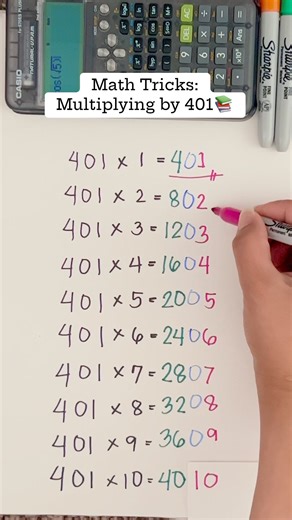 CASIO
DEL
AC
Ans
Sharpie
Sharpie
Math Tricks:
Multiplying by 401📚
401 × 1 = 401
401 × 2 = 802
401 × 3 = 1203
401 × 4 = 1604
401 × 5 = 2005
401 × 6 = 2406
401 × 7 = 2807
401 × 8 = 3208
401 × 9 = 3609
401 × 10 = 4010